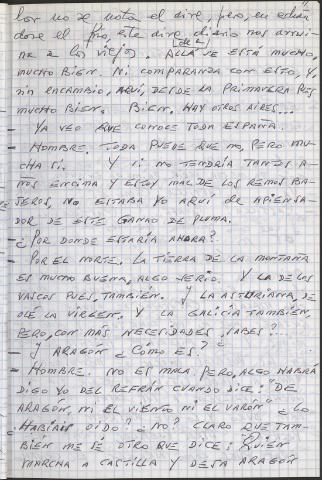 lor no se nota el dire, pero, en echán
dose el frío, este dire diario nos arrui
na a los viejos. ALLÁ SE ESTÁ MUCHO,
(de 2)
MUCHO BIEN. NI COMPARANZA CON ESTO, Y,
SIN ENCAMBIO, AQUÍ, DESDE LA PRIMAVERA PES
MUCHO BIEN. BIEN. HAY OTROS AIRES...
- YA VEO QUE CONOCE TODA ESPAÑA.
- HOMBRE. TODA PUEDE QUE NO, PERO MU
CHA SÍ. Y SI NO TENDRÍA TANTOS A-
ÑOS ENCIMA Y ESTOY MAL DE LOS REMOS BA-
JEROS, NO ESTABA YO AQUÍ DE APIENSA-
DOR DE ESTE GANAO DE PLUMA.
- ¿POR DONDE ESTARÍA AHORA?
- POR EL NORTE. LA TIERRA DE LA MONTAÑA
ES MUCHO BUENA, ALGO SERIO. Y LA DE LOS
VASCOS PUES, TAMBIÉN. Y LA ASTURIANA, DE
OLÉ LA VIRGEN. Y LA GALICIA TAMBIÉN,
PERO, CON MÁS NECESIDADES, ¿SABES?...
- Y ARAGÓN ¿CÓMO ES?
- HOMBRE. NO ES MALA PERO, ALGO HABRÁ
DIGO YO DEL REFRÁN CUANDO DICE: "DE
ARAGÓN, NI EL VIENTO NI EL VARÓN" ¿LO
HABÍAIS OIDO? ¿NO? CLARO QUE TAM-
BIÉN ME SÉ OTRO QUE DICE: "QUIÉN
MARCHA A CASTILLA Y DEJA ARAGÓN